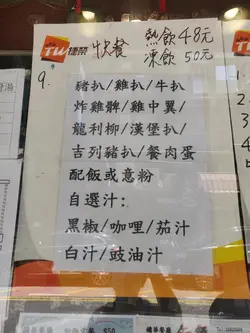 TW捷榮 快餐 熱飲48元
凍飲50元
9.
豬扒/雞扒/牛扒
炸雞髀/雞中翼/
龍利柳/漢堡扒/
吉列豬扒/餐肉蛋
配飯或意粉
自選汁:
黑椒/咖哩/茄汁
白汁/豉油汁
$50